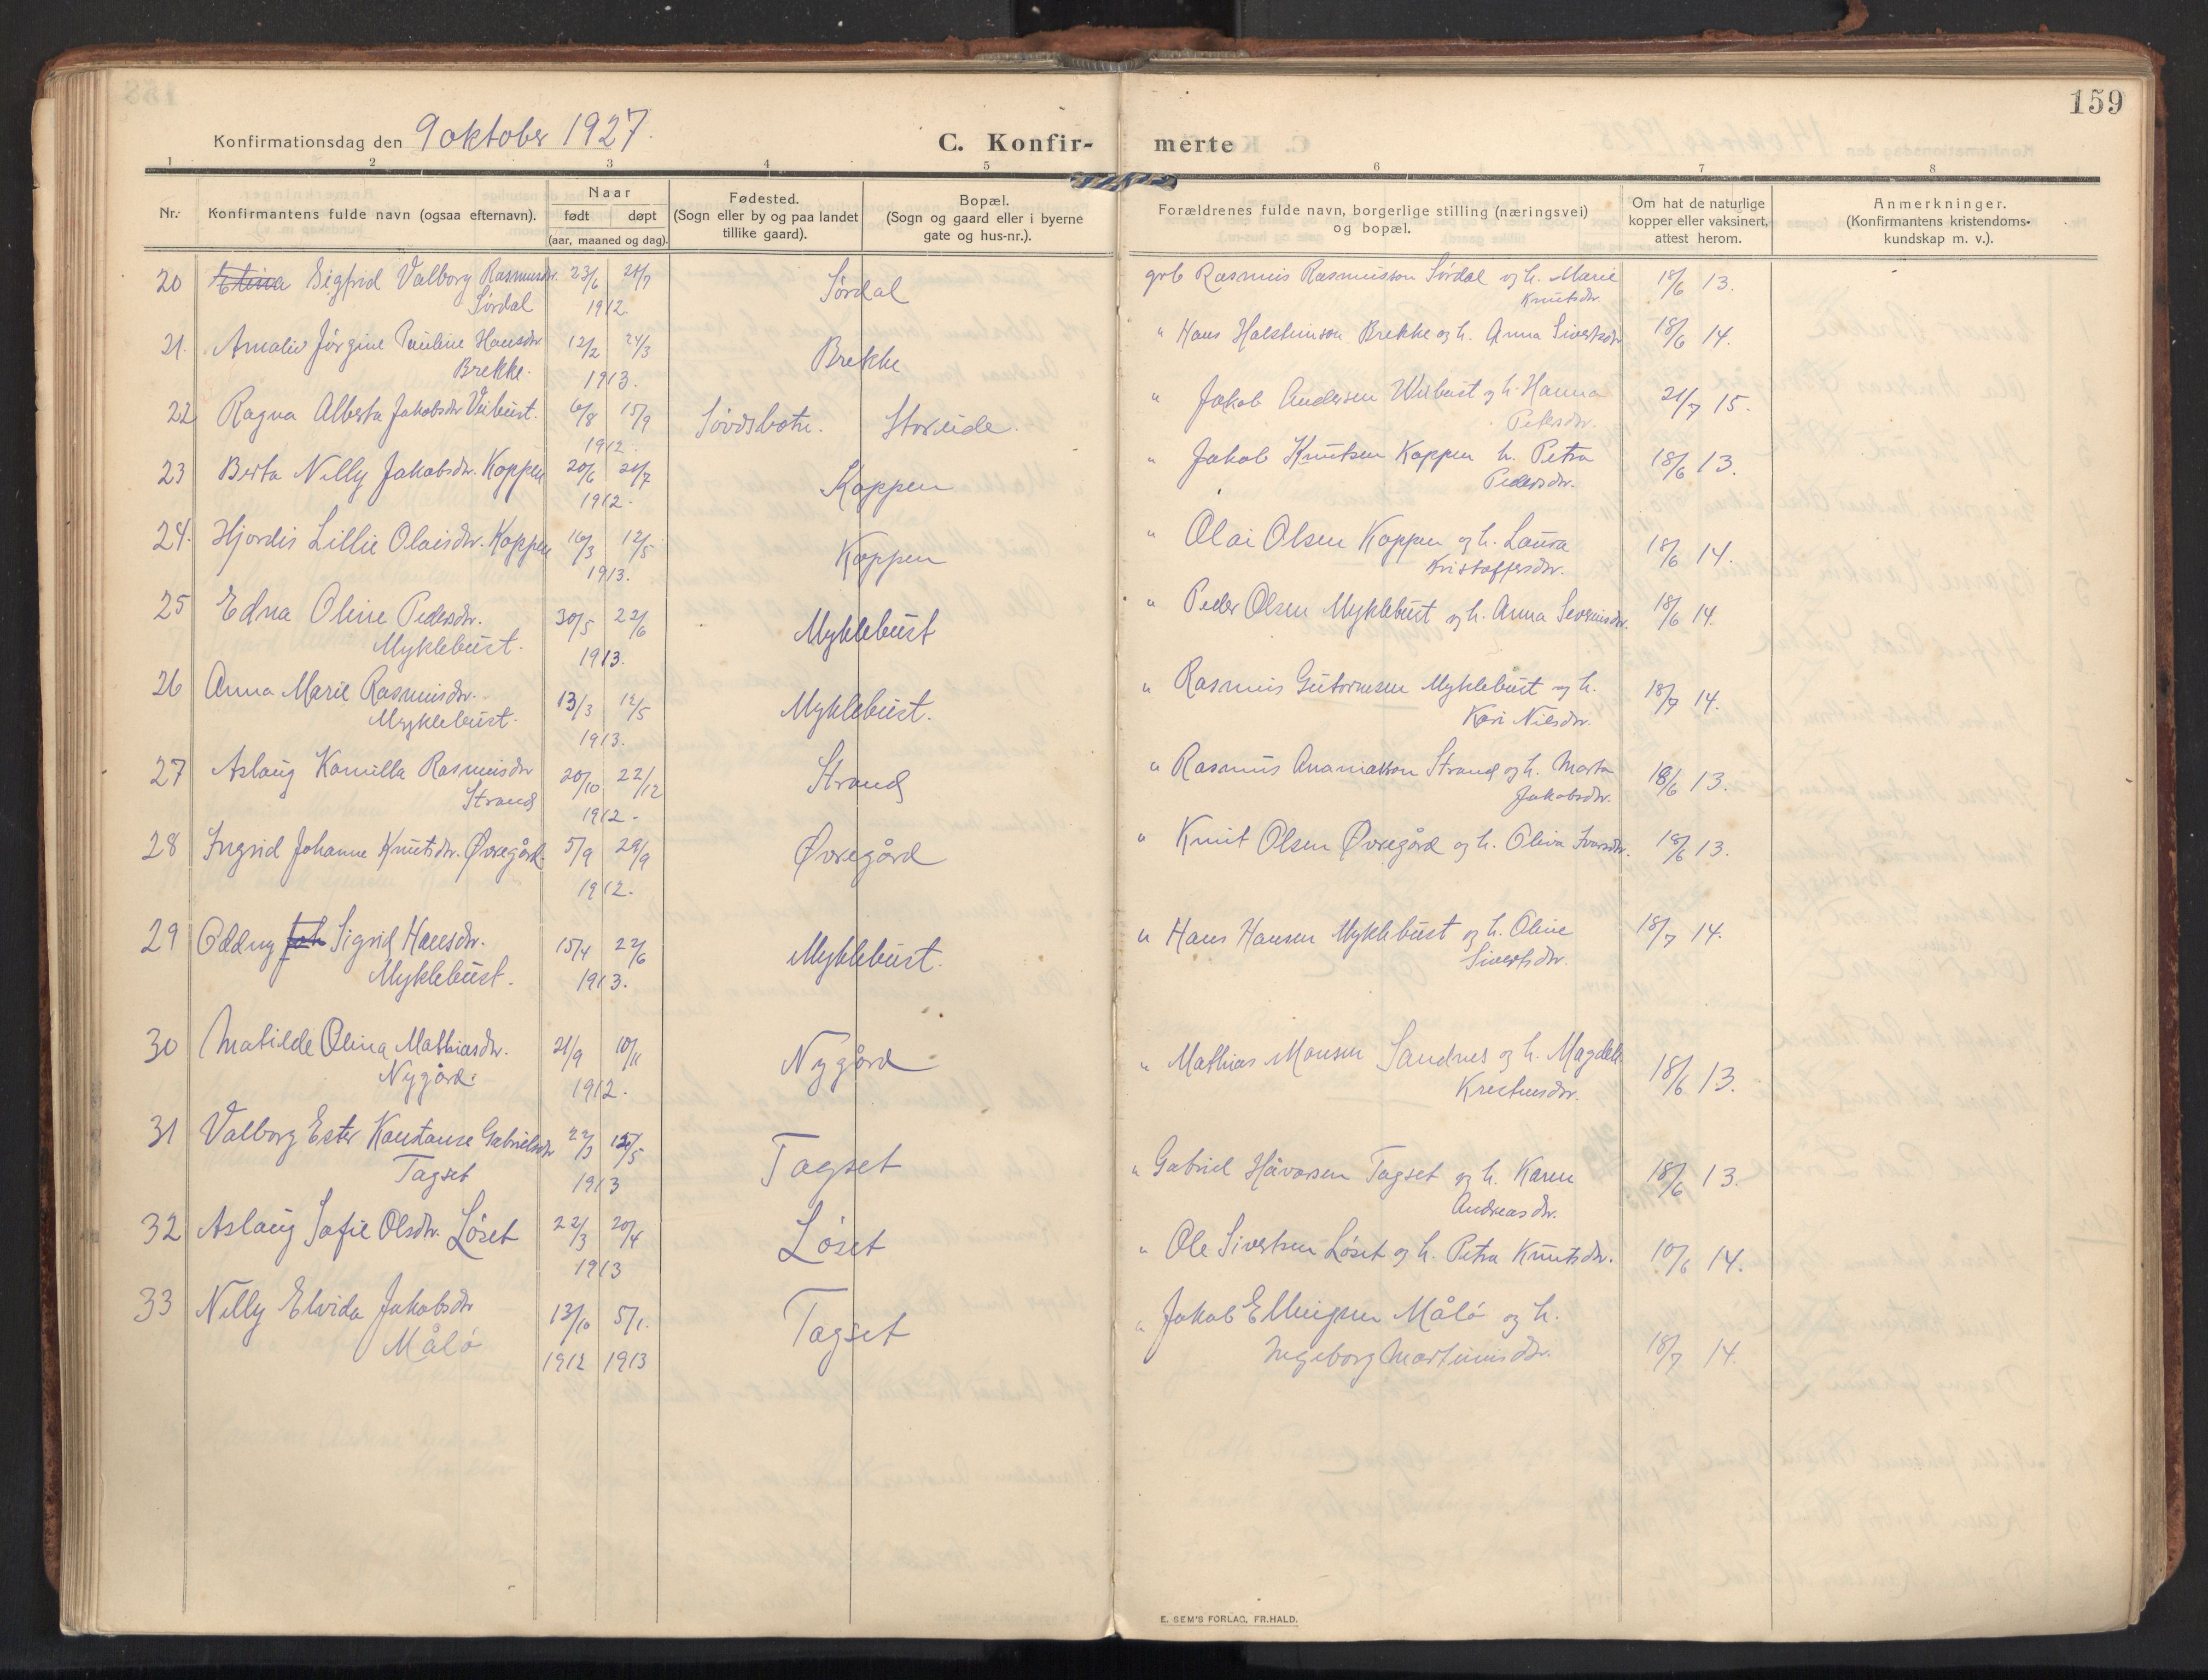 159
Konfirmationsdag den 9 oktober 1927.
C. Konfir- merte
1 2 3 4 5 6 7 8
Nr. Konfirmantens fulde navn (ogsaa efternavn). Naar født døpt (aar, maaned og dag). Fødested. (Sogn eller by og paa landet tillike gaard). Bopæl. (Sogn og gaard eller i byerne gate og hus-nr.). Forældrenes fulde navn, borgerlige stilling (næringsvei) og bopæl. Om hat de naturlige kopper eller vaksinert, attest herom. Anmerkninger. (Konfirmantens kristendoms-kundskap m. v.).
20 Sigfrid Valborg Rasmusdr. 23/6 21/7 Sørdal grb Rasmus Rasmusson Sørdal og h. Marie 18/6 13.
Sørdal 1912 Knutsdr.
21. Amalie Jørgine Pauline Hansdr 12/2 24/3 Brekke " Hans Holstinson Brekke og h. Anna Sivertsdr 18/6 14.
Brekke. 1913.
22 Ragna Alberta Jakobsdr. Veibust. 6/8 15/9 Søvdsbotn. Storeide. " Jakob Andersen Veibust og h. Hanna 21/7 15.
1912 Petersdr.
23 Berta Nelly Jakobsdr. Koppen 20/6 21/7 Koppen " Jakob Knutsen Koppen h. Petra 18/6 13.
1912. Pedersdr.
24. Hjordis Lillie Olaisdr. Koppen 16/3 12/5 Koppen " Olai Olsen Koppen og h. Laura 18/6 14.
1913. Kristoffersdr.
25 Edna Oline Pedersdr. 30/5 22/6 Myklebust " Peder Olsen Myklebust og h. Anna Severinsdr. 18/6 14.
Myklebust. 1913.
26 Anna Marie Rasmusdr. 13/3 12/5 Myklebust. " Rasmus Gutormsen Myklebust og h. 18/7 14.
Myklebust. 1913. Kari Nilsdr.
27 Aslaug Kamilla Rasmusdr 20/10 22/12 Strand " Rasmus Ananiasson Strand og h. Marta 18/6 13.
Strand 1912. Jakobsdr.
28 Ingrid Johanne Knutsdr. Øvregård. 5/9 29/9 Øvregård " Knut Olsen Øvregård og h. Oliva Ivarsdr. 18/6 13.
1912.
29 Oddny Joh Sigrid Hansdr. 15/4 22/6 Myklebust. " Hans Hansen Myklebust og h. Oline 18/7 14.
Myklebust. 1913. Sivertsdr.
30 Matilde Olina Mathiasdr. 21/9 10/11 Nygård " Mathias Monsen Sandnes og h. Magdele 18/6 13.
Nygård. 1912. Kristensdr.
31 Valborg Ester Konstanse Gabrielsdr 22/3 /5 Tagset " Gabriel Håvorsen Tagset og h. Karen 18/6 13.
Tagset 1913 Andreasdr.
32 Aslaug Sofie Olsdr. Løset 22/3 20/4 Løset " Ole Sivertsen Løset og h. Petra Knutsdr. 10/6 14.
1913
33 Nelly Elvida Jakobsdr 13/10 5/1. Tagset " Jakob Ellingsen Målø og h.
Målø 1912 1913 Ingeborg Martinusdr. 18/7 14.
E. SEM'S FORLAG, FR.HALD.